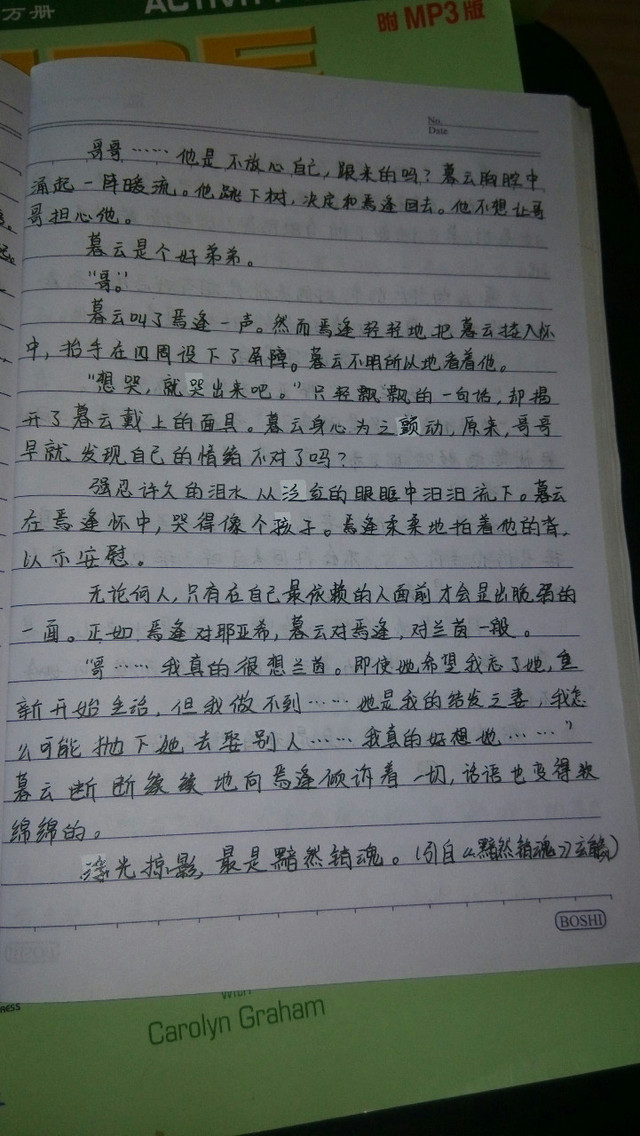 万册
ACTIVIT
附 MP3 版
No.
Date
哥哥……他是不放心自己,跟来的吗?暮云胸腔中
涌起一阵暖流。他跳下树,决定和焉逢回去。他不想让哥
哥担心他。
暮云是个好弟弟。
“哥。”
暮云叫了焉逢一声。然而焉逢轻轻地把暮云搂入怀
中,抬手在四周设下了屏障。暮云不明所以地看着他。
“想哭,就哭出来吧。”只轻飘飘的一句话,却揭
开了暮云戴上的面具。暮云身心为之颤动,原来,哥哥
早就发现自己的情绪不对了吗?
强忍许久的泪水从泛红的眼眶中汩汩流下。暮云
在焉逢怀中,哭得像个孩子。焉逢柔柔地拍着他的背,
以示安慰。
无论何人,只有在自己最依赖的人面前才会显出脆弱的
一面。正如焉逢对耶亚希,暮云对焉逢,对兰茵一般。
“哥……我真的很想兰茵。即使她希望我忘了她,重
新开始生活,但我做不到……她是我的结发之妻,我怎
么可能抛下她去娶别人……我真的好想她……”
暮云断断续续地向焉逢倾诉着一切,话语也变得软
绵绵的。
浮光掠影,最是黯然销魂。(引自《黯然销魂》
BOSHI
With
Carolyn Graham
ness